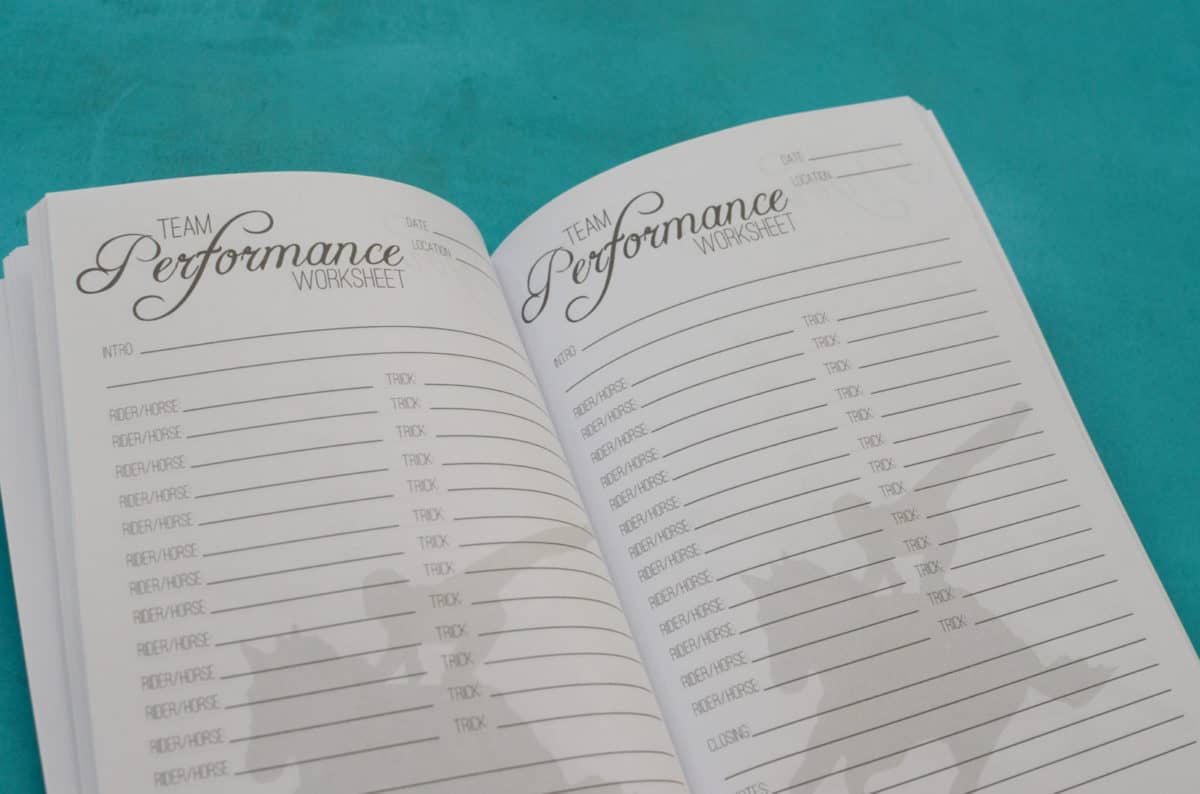 TEAM
Performance
WORKSHEET
DATE:
LOCATION:
INTRO:
RIDER/HORSE: TRICK:
RIDER/HORSE: TRICK:
RIDER/HORSE: TRICK:
RIDER/HORSE: TRICK:
RIDER/HORSE: TRICK:
RIDER/HORSE: TRICK:
RIDER/HORSE: TRICK:
RIDER/HORSE: TRICK:
RIDER/HORSE: TRICK:
RIDER/HORSE: TRICK:
RIDER/HORSE: TRICK:
RIDER/HORSE: TRICK:
RIDER/HORSE: TRICK:
TEAM
Performance
WORKSHEET
DATE:
LOCATION:
INTRO:
RIDER/HORSE: TRICK:
RIDER/HORSE: TRICK:
RIDER/HORSE: TRICK:
RIDER/HORSE: TRICK:
RIDER/HORSE: TRICK:
RIDER/HORSE: TRICK:
RIDER/HORSE: TRICK:
RIDER/HORSE: TRICK:
RIDER/HORSE: TRICK:
RIDER/HORSE: TRICK:
RIDER/HORSE: TRICK:
RIDER/HORSE: TRICK:
RIDER/HORSE: TRICK:
CLOSING:
NOTES: